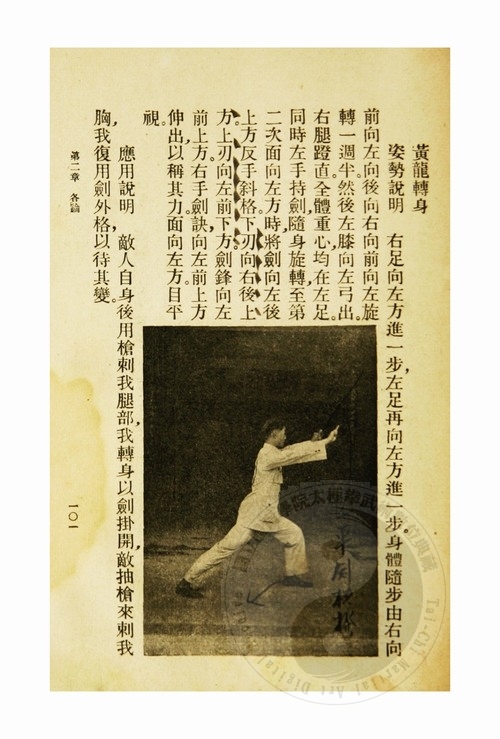 黃龍轉身
姿勢說明　右足向左方進一步,左足再向左方進一步。身體隨步由右向
前向左向後向右向前向左旋
轉一週半。然後左膝向左弓出。
右腿蹬直。全體重心,均在左足。
同時左手持劍,隨身旋轉。至第
二次面向左方時,將劍向左後
上方反手斜格。下刃向右後上
方。上刃向左前下方。劍鋒向左
前上方。右手劍訣向左前上方
伸出,以稱其力。面向左方。目平
視。
應用說明　敵人自身後用槍刺我腿部,我轉身以劍掛開,敵抽槍來刺我
胸,我復用劍外格,以待其變。
第二章　各論
一〇一
Tai-Chi Martial Art Digital